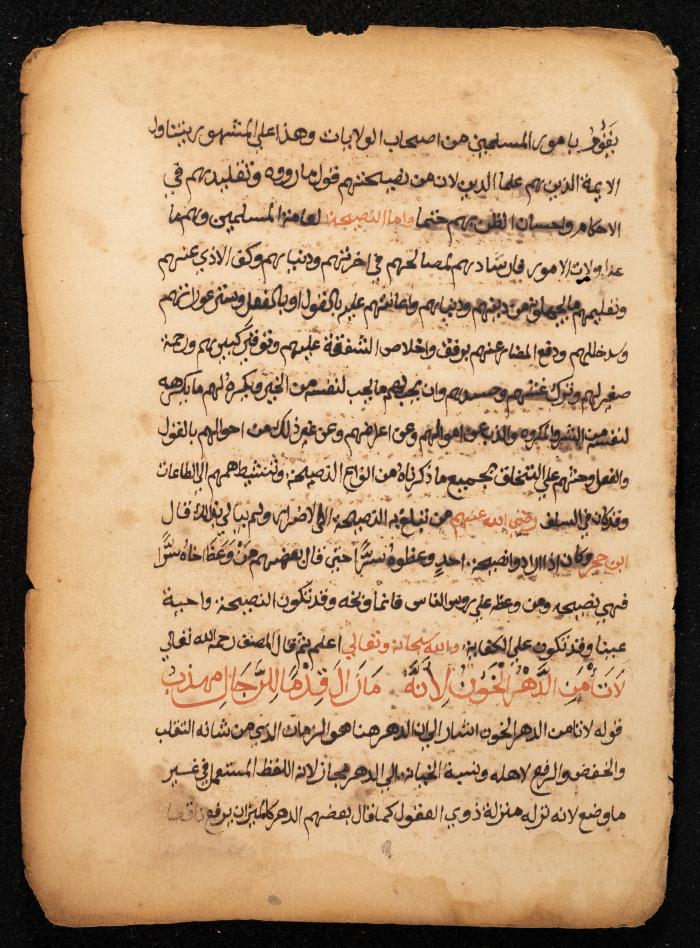 يقوم بامور المسلمين من اصحاب الولايات وهذا على المشهور يتناول
الايمة الذين هم علما الدين لان من نصيحتهم قبول ما رووه وتقليدهم في
الاحكام واحسان الظن بهم ختما واما النصيحة لعامة المسلمين وهم ما
عدا ولات الامور فارشادهم لمصالحهم في اخرتهم ودنياهم وكف الاذي عنهم
وتعليمهم ما يجهلونه من دينهم ودنياهم واعانتهم عليه بالقول او بالفعل وستر عوراتهم
وسد خللهم ودفع المضار عنهم برفق واخلاص الشفقة عليهم وتوقير كبيرهم ورحمة
صغيرهم وترك غشهم وحسدهم وان يحب لهم ما يحب لنفسه من الخير ويكره لهم ما يكرهه
لنفسه من الشر والمكروه والذب عن اموالهم وعن اعراضهم وعن غير ذلك من احوالهم بالقول
والفعل وحثهم على التخلق بجميع ما ذكرناه من انواع النصيحة وتنشيط هممهم الى الطاعات
وقد كان في السلف رضي الله عنهم من تبلغ به النصيحة الى الاضرار ولم يبالي بذلك قال
ابن حجر وكان اذا ارادوا نصيحة احد وعظوه سرا حتى قال بعضهم من وعظ اخاه سرا
فهي نصيحه ومن وعظه على روس الناس فانما وبخه وقد تكون النصيحة واجبة
عينا وقد تكون على الكفاية والله سبحانه وتعالى اعلم ثم قال المصنف رحمه الله تعالى
لا تأمن الدهر الخؤن لانه ما زال قدما للرجال مهذب
قوله لا تامن الدهر الخون اشار الى ان الدهر هنا هو الزمان الذي من شانه التقلب
والخفض والرفع لاهله ونسبة الخيانة الى الدهر مجاز لانه اللفظ المستعمل في غير
ما وضع لانه نزله منزلة ذوي العقول كما قال بعضهم الدهر كالميزان يرفع ناقصا